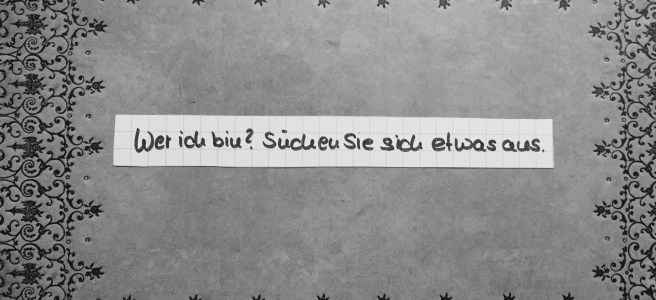 Wer ich bin? Suchen Sie sich etwas aus.